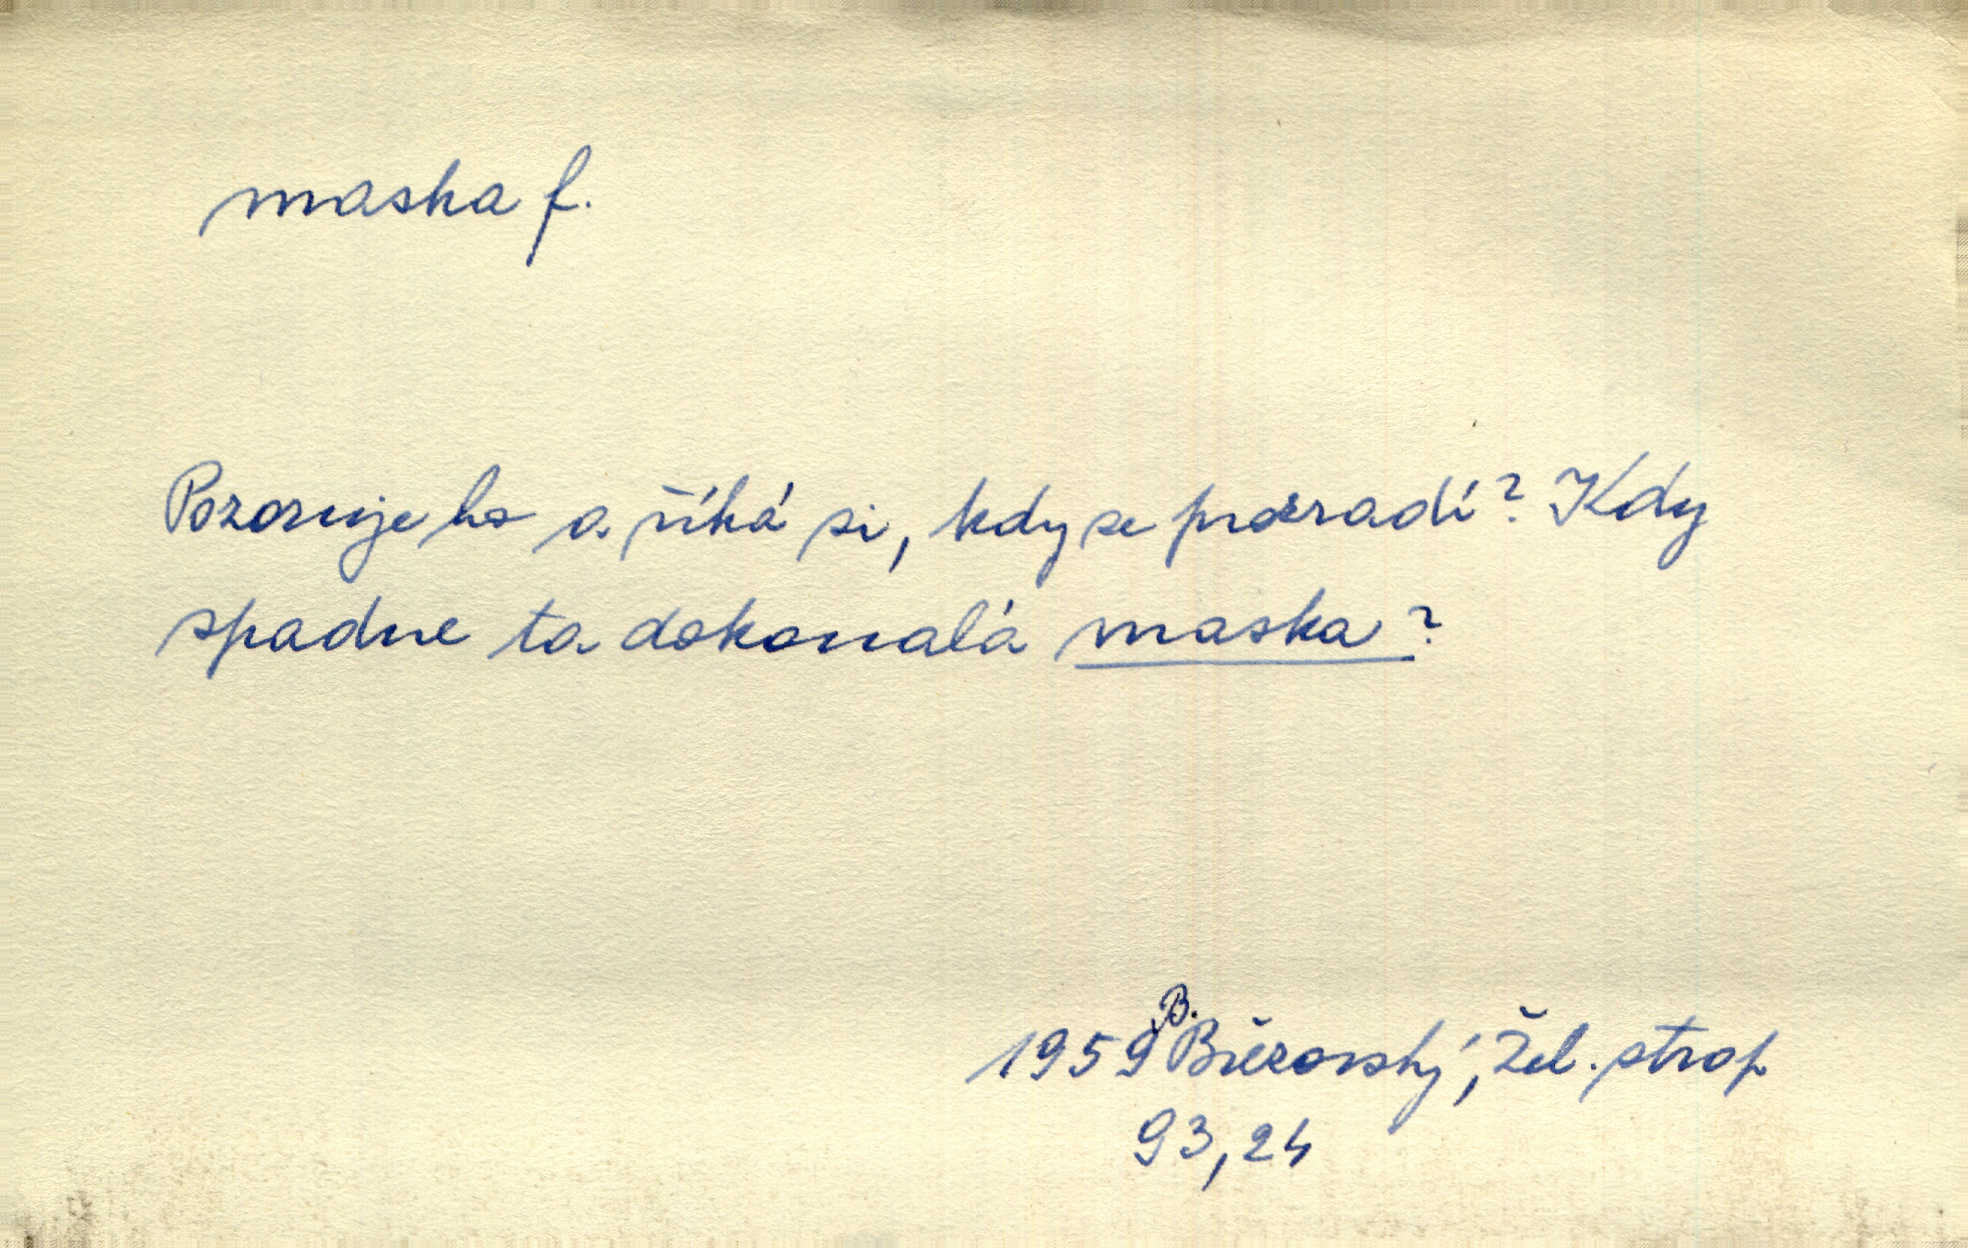 maska f.
Pozoruje ho a říká si, kdy se prozradí? Kdy
spadne ta dokonalá maska?
1959 B. Březovský, Žel. strop
93,24